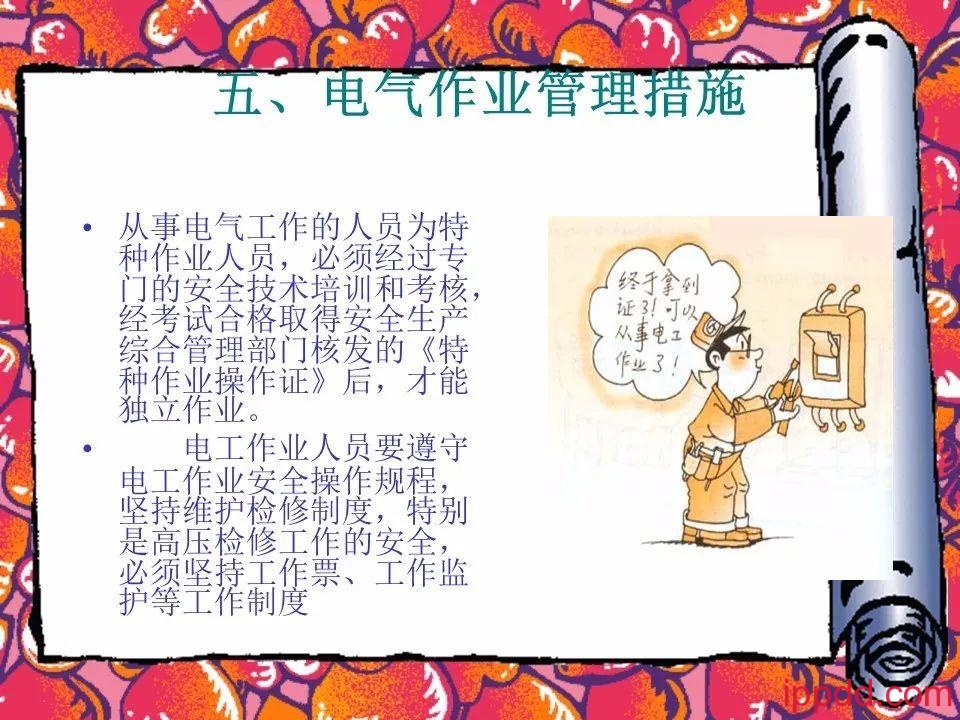 五、电气作业管理措施
• 从事电气工作的人员为特
种作业人员，必须经过专
门的安全技术培训和考核，
经考试合格取得安全生产
综合管理部门核发的《特
种作业操作证》后，才能
独立作业。
• 电工作业人员要遵守
电工作业安全操作规程，
坚持维护检修制度，特别
是高压检修工作的安全，
必须坚持工作票、工作监
护等工作制度
终于拿到
证了！可以
从事电工
作业了！
ippdd.com